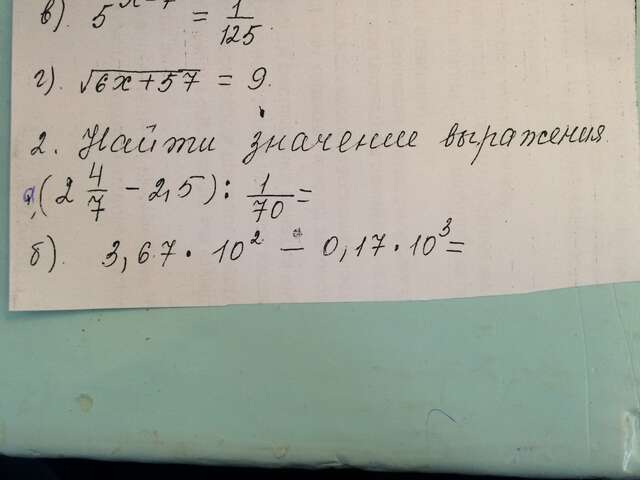 в). 5^{x-7} = 1/125.
г). √(6x+57) = 9.
2. Найти значение выражения.
а) (2 4/7 - 2,5) : 1/70 =
б). 3,67 · 10² - 0,17 · 10³ =